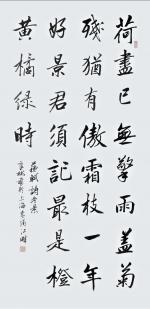 荷盡已無擎雨蓋菊
殘猶有傲霜枝一年
好景君須記最是橙
黃橘綠時
蘇軾詩冬景